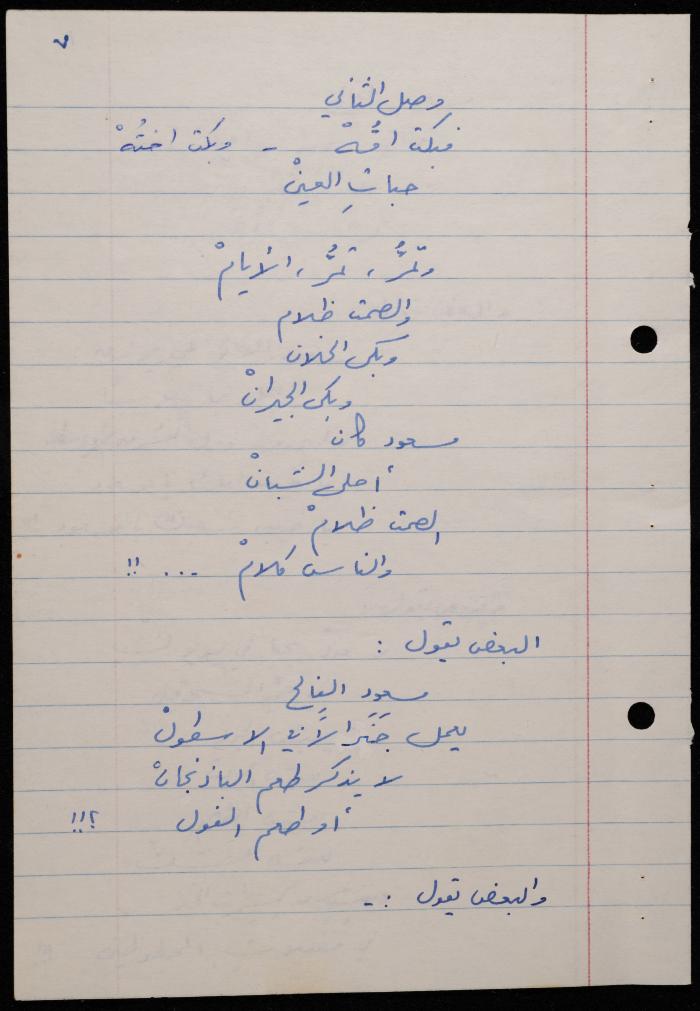 ٧
وصل الثاني
فبكت امُّهْ - وبكت اختُهْ
حباتِ العينْ
وتمرُّ ، تمرُّ ، الأيامْ
والصمت ظلام
وبكى الخلان
وبكى الجيرانْ
مسعود كان
أحلى الشبانْ
الصمت ظلامْ
والناس كلامْ ... !!
البعض يقول :
مسعود الفالح
يعمل جنَرالاً في الاسطولْ
لا يذكر طعم الباذنجانْ
أو طعم الفول ؟!!
والبعض يقول :-